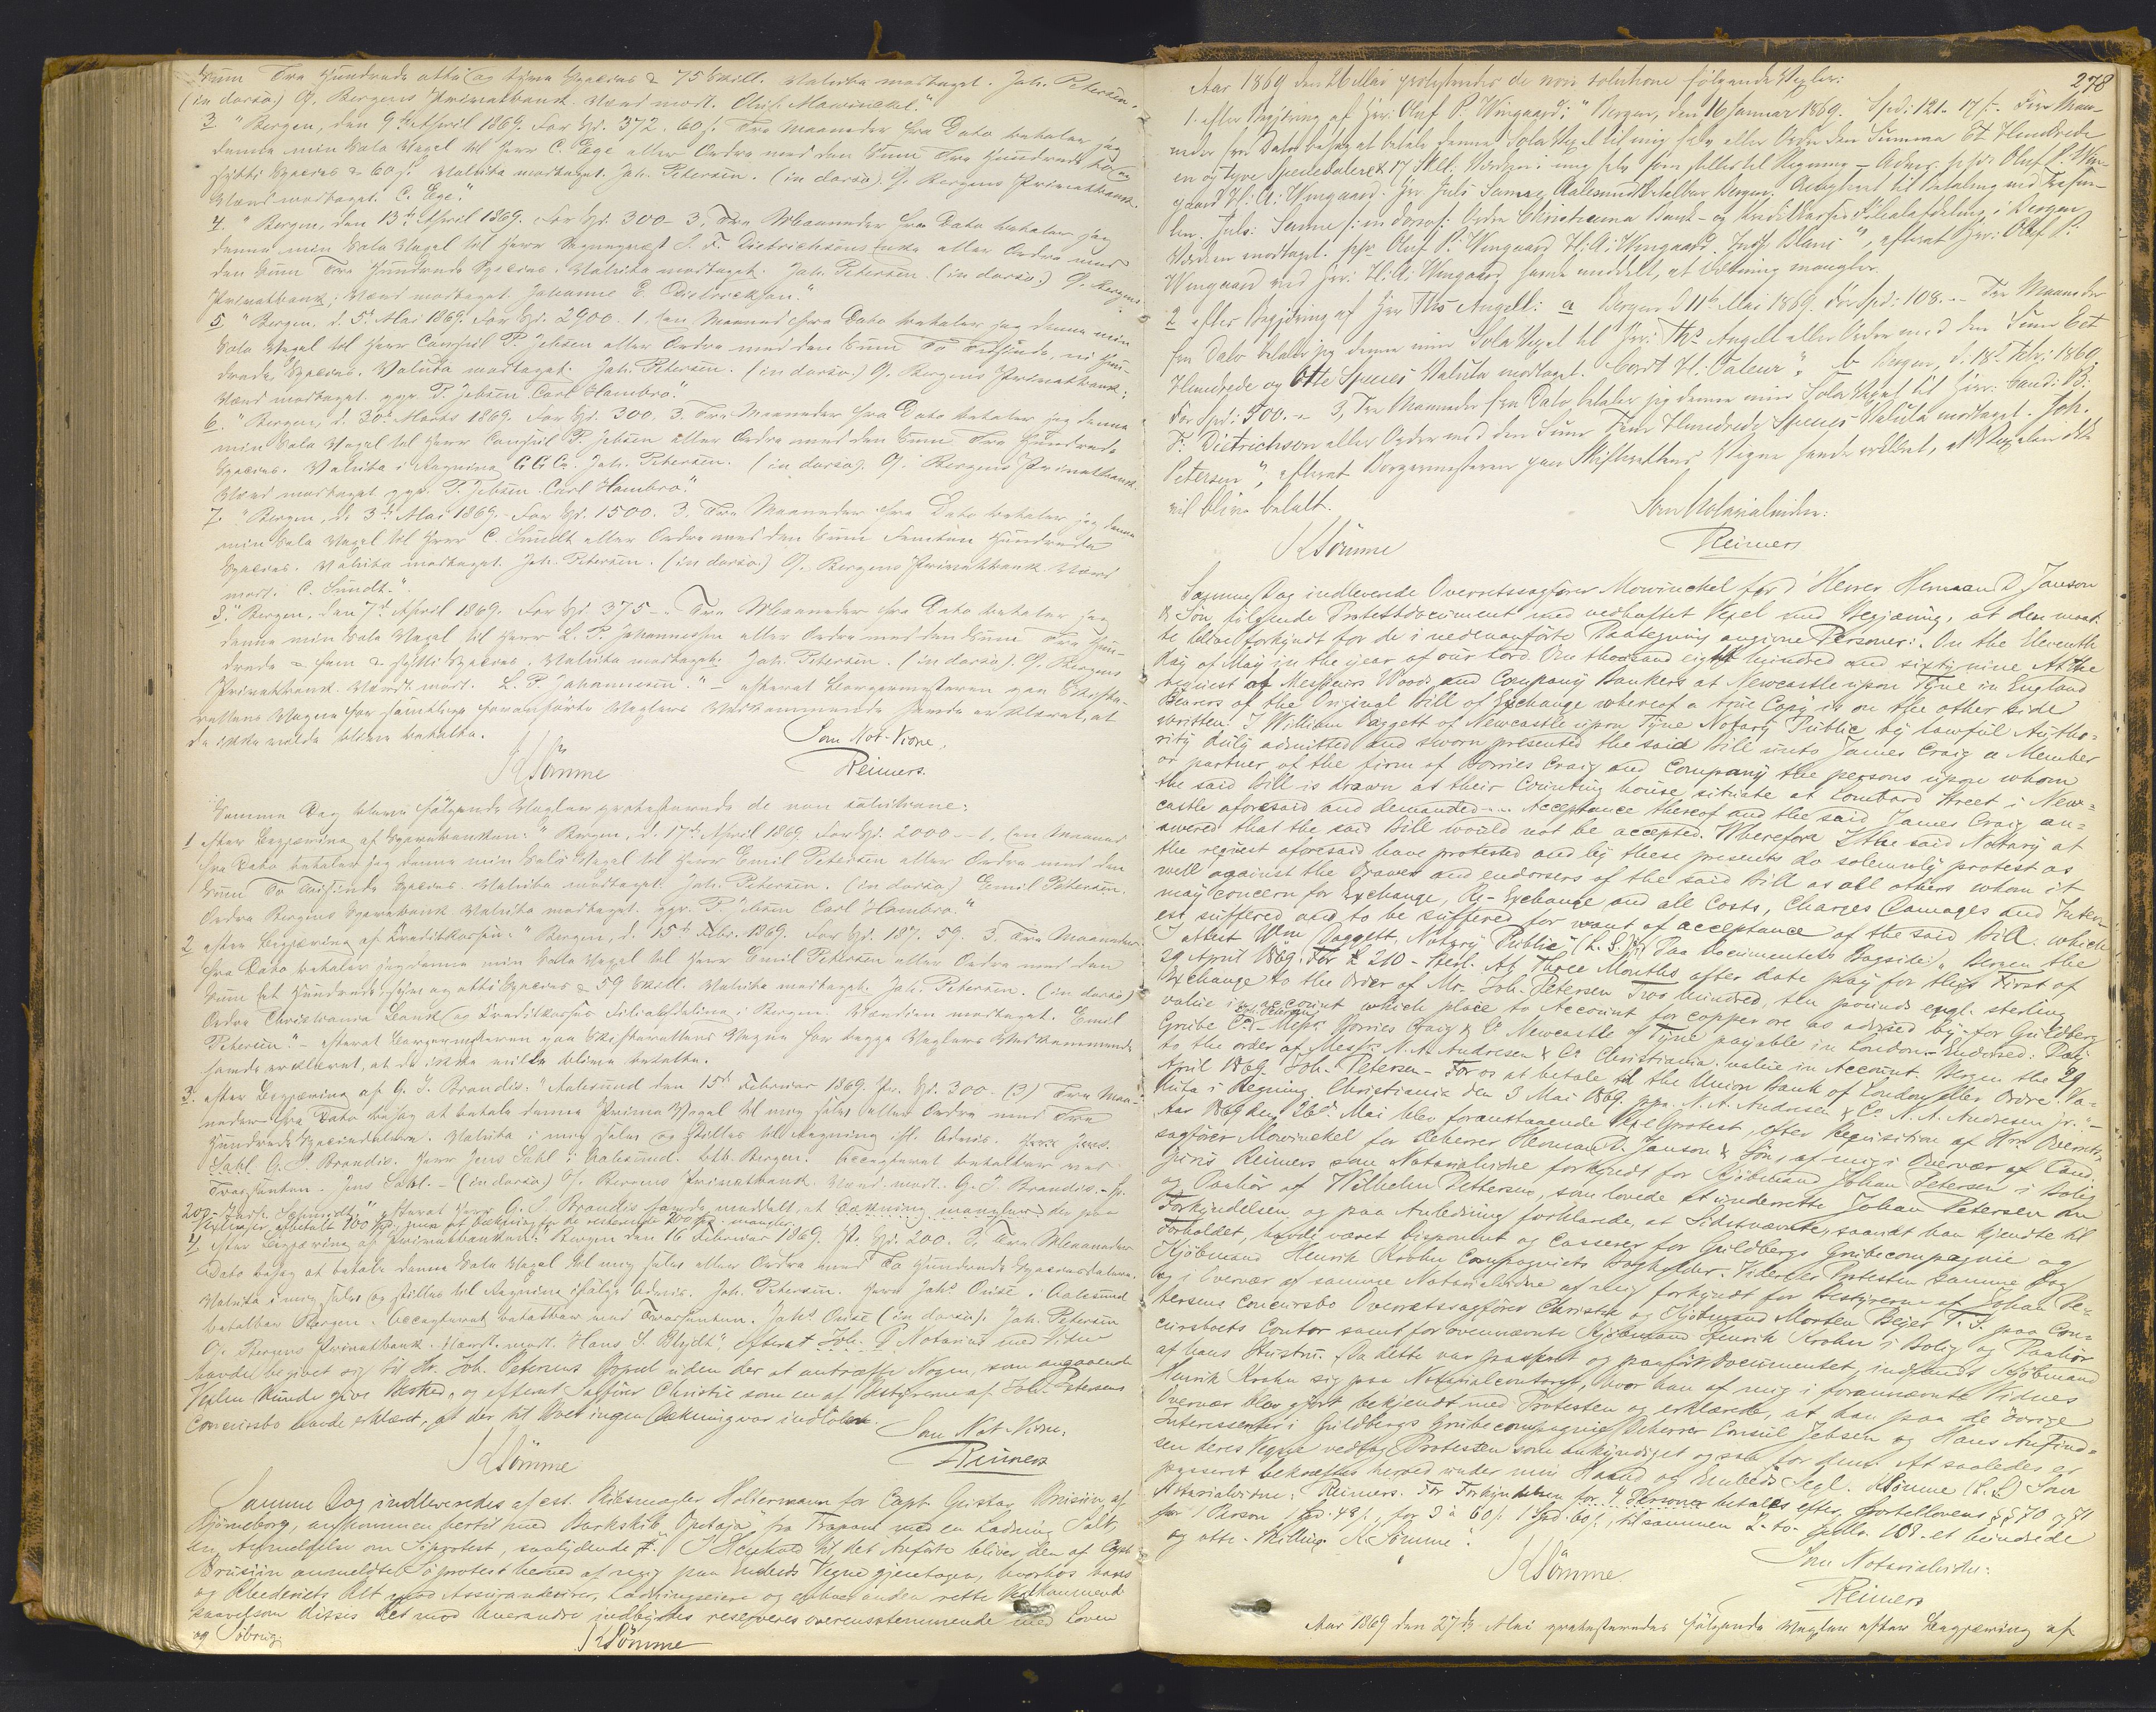 Sum Tre Hundrede otti og fire Species & 75 Skill. Valuta modtaget. Joh. Petersen.
(in dorso.) O/. Bergens Privatbank. Værd modt. Chrs. Mowinckel."
3 "Bergen, den 9de April 1869. For Spd. 372. 60 s. Tre Maaneder fra Dato betaler jeg
denne min Sola Vexel til Herr C. Ege eller Ordre med den Sum Tre Hundrede to og
sytti Species & 60 s. Valuta modtaget. Joh. Petersen. (in dorso). O/. Bergens Privatbank.
Værd modtaget. C. Ege."
4. "Bergen, den 13de April 1869. For Spd. 300- 3, Tre Maaneder fra Dato betaler jeg
denne min Sola Vexel til Herr Sogneprest J. F. Dietrichsons Enke eller Ordre med
den Sum Tre Hundrede Species. Valuta modtaget. Joh. Petersen. (in dorso.) O/. Bergens
Privatbank; Værd modtaget. Johanne E. Dietrichson."
5, "Bergen, d. 5te Mai 1869. For Spd. 2900. 1. En Maaned fra Dato betaler jeg denne min
Sola Vexel til Herr Consul P. Jebsen eller Ordre med den Sum To Tusinde, ni Hun-
drede Species. Valuta modtaget. Joh. Petersen. (in dorso.) O/. Bergens Privatbank;
Værd modtaget. ppr. P. Jebsen Carl Hambro".
6. "Bergen, d. 30te Marts 1869. For Spd. 300. 3. Tre Maaneder fra Dato betaler jeg denne
min Sola Vexel til Herr Consul P. Jebsen eller Ordre med den Sum Tre Hundrede
Species. Valuta i Regning G G Co. Joh. Petersen. (in dorso). O/. Bergens Privatbank.
Værd modtaget ppr. P. Jebsen. Carl Hambro."
7. "Bergen, d. 3de Mai 1869. For Spd. 1500. 3. Tre Maaneder fra Dato betaler jeg denne
min Sola Vexel til Herr C. Sundt eller Ordre med den Sum Femten Hundrede
Species. Valuta modtaget. Joh. Petersen. (in dorso.) O/. Bergens Privatbank. Værd
modt. C. Sundt."
8. "Bergen, den 7de April 1869. For Spd 375 - . Tre Maaneder fra Dato betaler jeg
denne min Sola Vexel til Herr L. P. Johannesen eller Ordre med den Sum Tre Hun-
drede & fem & sytti Species. Valuta modtaget. Joh. Petersen. (in dorso). O/. Bergens
Privatbank. Værdt modt. L. P. Johannesen." - efterat Borgermesteren paa Skifte-
rettens Vegne for samtlige foranførte Vexlers Vedkommende havde erklæret, at
de ikke vilde blive betalte.
Som Not. Vidne,
KSömme
Reimers.
Samme Dag bleve følgende Vexler protesterede de non solutione:
1 efter Begjæring af Sparebanken: "Bergen, d. 17de April 1869 For Spd. 2000 - 1, En Maaned
fra Dato betaler jeg denne min Sola Vexel til Herr Emil Petersen eller Ordre med den
Sum To Tusinde Species. Valuta modtaget. Joh. Petersen. (in dorso) Emil Petersen.
Ordre Bergens Sparebank Valuta modtaget. ppr. P. Jebsen Carl Hambro."
2 efter Begjæring af Kreditkassen: "Bergen, d. 15de Febr. 1869. For Spd. 187. 59. 3. Tre Maaneder
fra Dato betaler jeg denne min Sola Vexel til Herr Emil Petersen eller Ordre med den
Sum Et Hundrede, syv og otti Species & 59 Skill. Valuta modtaget. Joh. Petersen. (in dorso)
Ordre Christiania Bank og Kreditkasses Filialafdeling i Bergen. Værdien modtaget. Emil
Petersen" - efterat Borgermesteren paa Skifterettens Vegne for begge Vexlers Vedkommende
havde erklæret, at de ikke vilde blive betalte.
3. efter Begjæring af G. J. Brandis: "Aalesund den 15de Februar 1869. Pr. Spd. 300 - (3) Tre Maa-
neder fra Dato behag at betale denne Prima Vexel til mig selv eller Ordre med Tre
Hundrede Speciedalere. Valuta i mig selv og stilles til Regning ifl. Advis. Herr Jens.
Dahl. G. J. Brandis. Herr Jens Dahl i Aalesund. btb. Bergen. Accepteret betalbar ved
Trassenten. Jens Dahl. - (in dorso) O/. Bergens Privatbank. Værd. modt. G. J. Brandis. -
efterat G. J. Brandis havde meddelt, at Dækning mangler der paa
Vexlen er afbetalt 100 Spd., men at Dækning for de resterende 200 Spd. mangler.
4 efter Begjæring af Privatbanken: Bergen den 16 Februar 1869. Pr. Spd. 200. 3, Tre Maaneder
Dato behag at betale denne Sola Vexel til mig selv eller Ordre med To Hundrede Speciesdalere.
Valuta i mig selv og stilles til Regning ifølge Advis. Joh. Petersen. Herr Johs Onse i Aalesund
betalbar Bergen. Accepteret betalbar med Trassenten. Johs Onse (in dorso). Joh. Petersen
O/. Bergens Privatbank. Værdt. modt. Hans S. Blydt", efterat Joh. P. Notarius med Vidne
havde begivet sig til Hr. Joh. Petersens Bopæl uden der at antræffe Nogen, som angaaende
Vexlen kunde give Besked, og efterat Sagfører Christie som en af Bestyrerne af Joh. Petersens
Concursbo havde erklæret, at der til Boet ingen Dækning var indløben.
Som Not. Vidne,
KSömme
Reimers
Samme Dag indleveredes af cst. Skibsmægler Holtermann for Capt. Gustav Brusiin, af
Björneborg, ankommen hertil med Barkskib "Optaja" fra Trapani med en Ladning Salt,
en Anmeldelse om Søprotest, saalydende "I Henhold til det Anførte bliver den af Capt.
Brusiin anmeldte Søprotest herved af mig paa Embeds Vegne gjentagen, hvorhos hans
og Rhederiets Ret mod Assurandeurer, Ladningseiere og enhver anden rette Vedkommende
saavelsom disses Ret mod hverandre indbyrdes reserveres overensstemmende med Loven
og Søbrug.
KSömme
278
Aar 1869 den 26 Mai protesteredes de non solutione følgende Vexler:
1. efter Begjæring af Herr Oluf P. Wingaard: "Bergen, den 16 Januar 1869. Spd: 121. 17 s. Fire Maa-
neder fra Dato behag at betale denne Sola Vexel til mig selv eller Ordre den Summa Et Hundrede
en og tyve Speciedalere & 17 Skill. Værdien i mig selv som stilles til Regning - Advis. pp. Oluf P. Win-
gaard H: A: Wingaard. Herr Juls. Sanne, Aalesund betalbar Bergen. Accepteret til Betaling ved Trassen-
ten. Juls: Sanne /: in dorso :/ Ordre Christiania Bank- og Kreditkasses Filialafdeling i Bergen
Værdien modtaget. ppr Oluf P. Wingaard H. A. Wingaard. Indf Blanc", efterat Herr: Oluf P.
Wingaard ved Herr: H. A. Wingaard havde meddelt, at Dækning mangler.
2 efter Begjæring af Herr Ths Angell: a Bergen d 11te Mai 1869. For Spd: 108. -- Tre Maaneder
fra Dato betaler jeg denne min Sola Vexel til Herr: Ths Angell eller Ordre med den Sum Eet
Hundrede og Otte Species Valuta modtaget. Cordt H: Valeur"; b Bergen, d: 18de Febr: 1869
For Spd: 500. -- 3, Tre Maaneder fra Dato betaler jeg denne min Sola Vexel til Herr: Cand: B:
F: Dietrichson eller Ordre med den Sum Fem Hundrede Species Valuta modtaget. Joh.
Petersen", efterat Borgermesteren paa Skifterettens Vegne havde erklæret, at Vexelen ikke
vil blive betalt.
Som Notarialvidne:
KSömme
Reimers
Samme Dag indleverede Overretssagfører Mowinckel for D'Herrer Herman D. Janson
& Søn, følgende Protestdocument med vedhæftet Vexel med Begjæring, at den maat-
te blive forkyndt for de i nedenanførte Paategning angivne Personer: "On the Eleventh
day of May in the year of our Lord One thousand eight hundred and sixty nine At the
request of Messieurs Woods and Company Bankers at Newcastle upon Tyne in England
Bearers of the Original Bill of Exchange whereof a true Copy is on the other side
written. I William Daggett of Newcastle upon Tyne Notary Public by lawful Autho-
rity duly admitted and sworn presented the said Bill unto James Craig a Member
or partner of the firm of Borries Craig and Company the persons upon whom
the said Bill is drawn at their Counting house situate at Lombard Street i New=
castle aforesaid and demanded ... Acceptance thereof and the said James Craig an=
swered that the said Bill would not be accepted. Wherefore I the said Notary at
the request aforesaid have protested and by these presents do solemnly protest as
well against the Drawer and endorsers of the said Bill as all others whom it
may concern for Exchange, Re-Exchange and all Costs, Charges Damages and Inter-
est suffered and to be suffered for want of acceptance of the said Bill. which
I attest Wm Daggett. Notary Public" (L. S.) Paa Documentets Bagside: "Bergen the
29 April 1869. For £ 210 - Sterl. At Three Months after date pay for this First of
Exchange to the Order of Mr. Joh. Petersen Two hundred, ten pounds engl. sterling
value in account which place to Account for copper ore as advised by - for Guldberg
Grube Co. - Messrs Borries Craig & Co Newcastle of Tyne payable in London - Endorsed: Pay
to the order of Messrs. N. A. Andresen & Co Christiania. value in Account. Bergen the 29
April 1869. Joh. Petersen - For os at betale til the Union Bank of London eller Ordre. Va-
luta i Regning Christiania den 3 Mai 1869. ppa. N. A. Andresen & Co. N. A. Andresen jr. -
Aar 1869 den 26de Mai blev foranstaaende Vexelprotest, efter Requisition af Hr. Overrets-
sagfører Mowinckel for Deherrer Herman D. Janson & Søn, af mig i Overvær af Cand.
juris Reimers som Notarialvidne forkyndt for Kjöbmand Johan Petersen i Bolig
og Paahør af Wilhelm Petterson, som lovede at underrette Johan Petersen om
Forkyndelsen og paa Anledning forklarede, at Sidstnævnte, saavidt han kjendte til
Forholdet, havde været Disponent og Casserer for Guldbergs Grubecompagnie og
Kjöbmand Henrik Krohn Compagniets Bogholder. Videre er Protesten samme Dag
og i Overvær af samme Notarialvidne af mig forkyndt for Bestyrerne af Johan Pe-
tersens Concursbo Overretssagfører Christie og Kjöbmand Morten Beyer T. S. paa Con-
cursboets Contor samt for ovennævnte Kjöbmand Henrik Krohn i Bolig og Paahør
af hans Hustru. Da dette var passeret og paaført Documentet, indfandt Kjöbmand
Henrik Krohn sig paa Notarialcontoret, hvor han af mig i forannævnte Vidnes
Overvær blev gjort bekjendt med Protesten og erklærede, at han paa de øvrige
Interessenter i Guldbergs Grubecompagnie, Deherrer Consul Jebsen og Hans Aufind-
sen deres Vegne vedtog Protesten som ankyndiget ogsaa for dem. At saaledes er
passeret bekræftes herved under min Haand og Embeds Segl. KSömme (L. S.) Som
Notarialvidne: Reimers. For Forkyndelsen for 4 Personer betales efter Sportellovens §§ 70 og 71
for 1 Person 1 Spd. 48 s., for 3 à 60 s. 1 Spd. 60 s., tilsammen 2 - to - Spdlr. 108. et hundrede
og otte - Skilling. KSömme."
Som Notarialvidne:
KSömme.
Reimers
Aar 1869 den 27de Mai protesteredes følgende Vexler efter Begjæring af